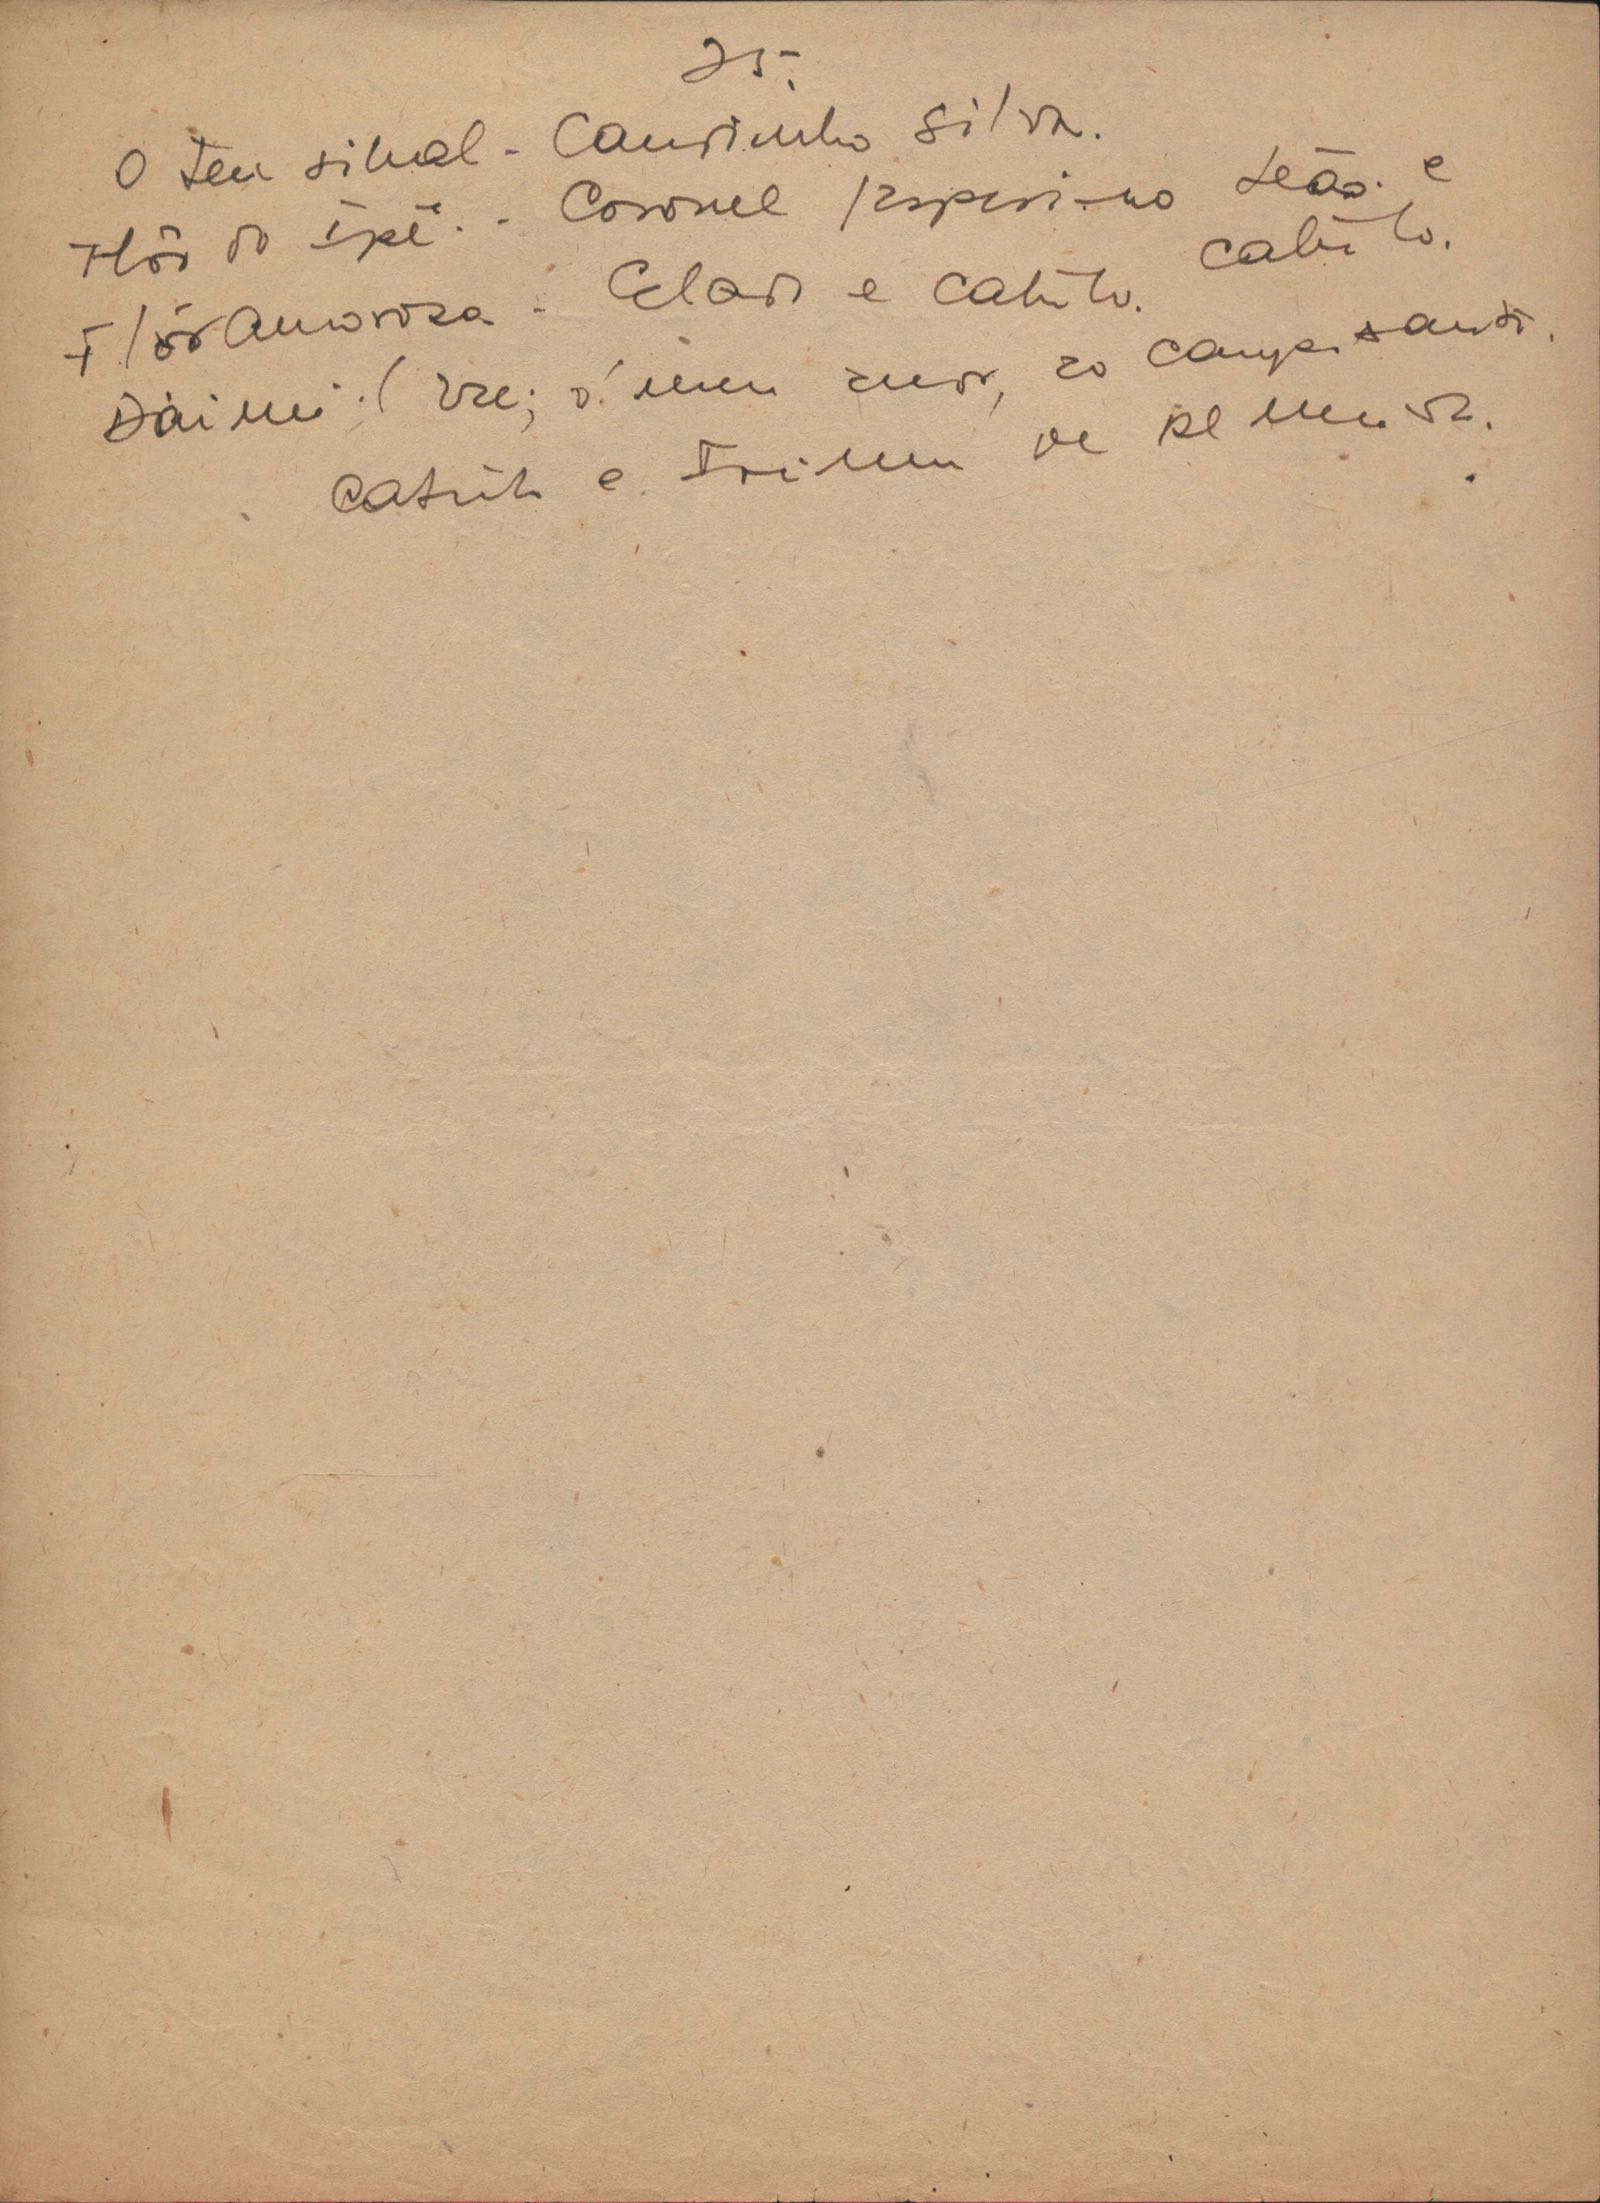 25.
O teu sinal - Candinho Silva.
Flôr do Ipê. - Coronel Irspiridião Leão. e
Catulo.
Flôr Amorosa - Celado e Catulo.
Daime! Vae; ó meu amor, ao Campo santo.
Catulo e Irineu de Almeida.